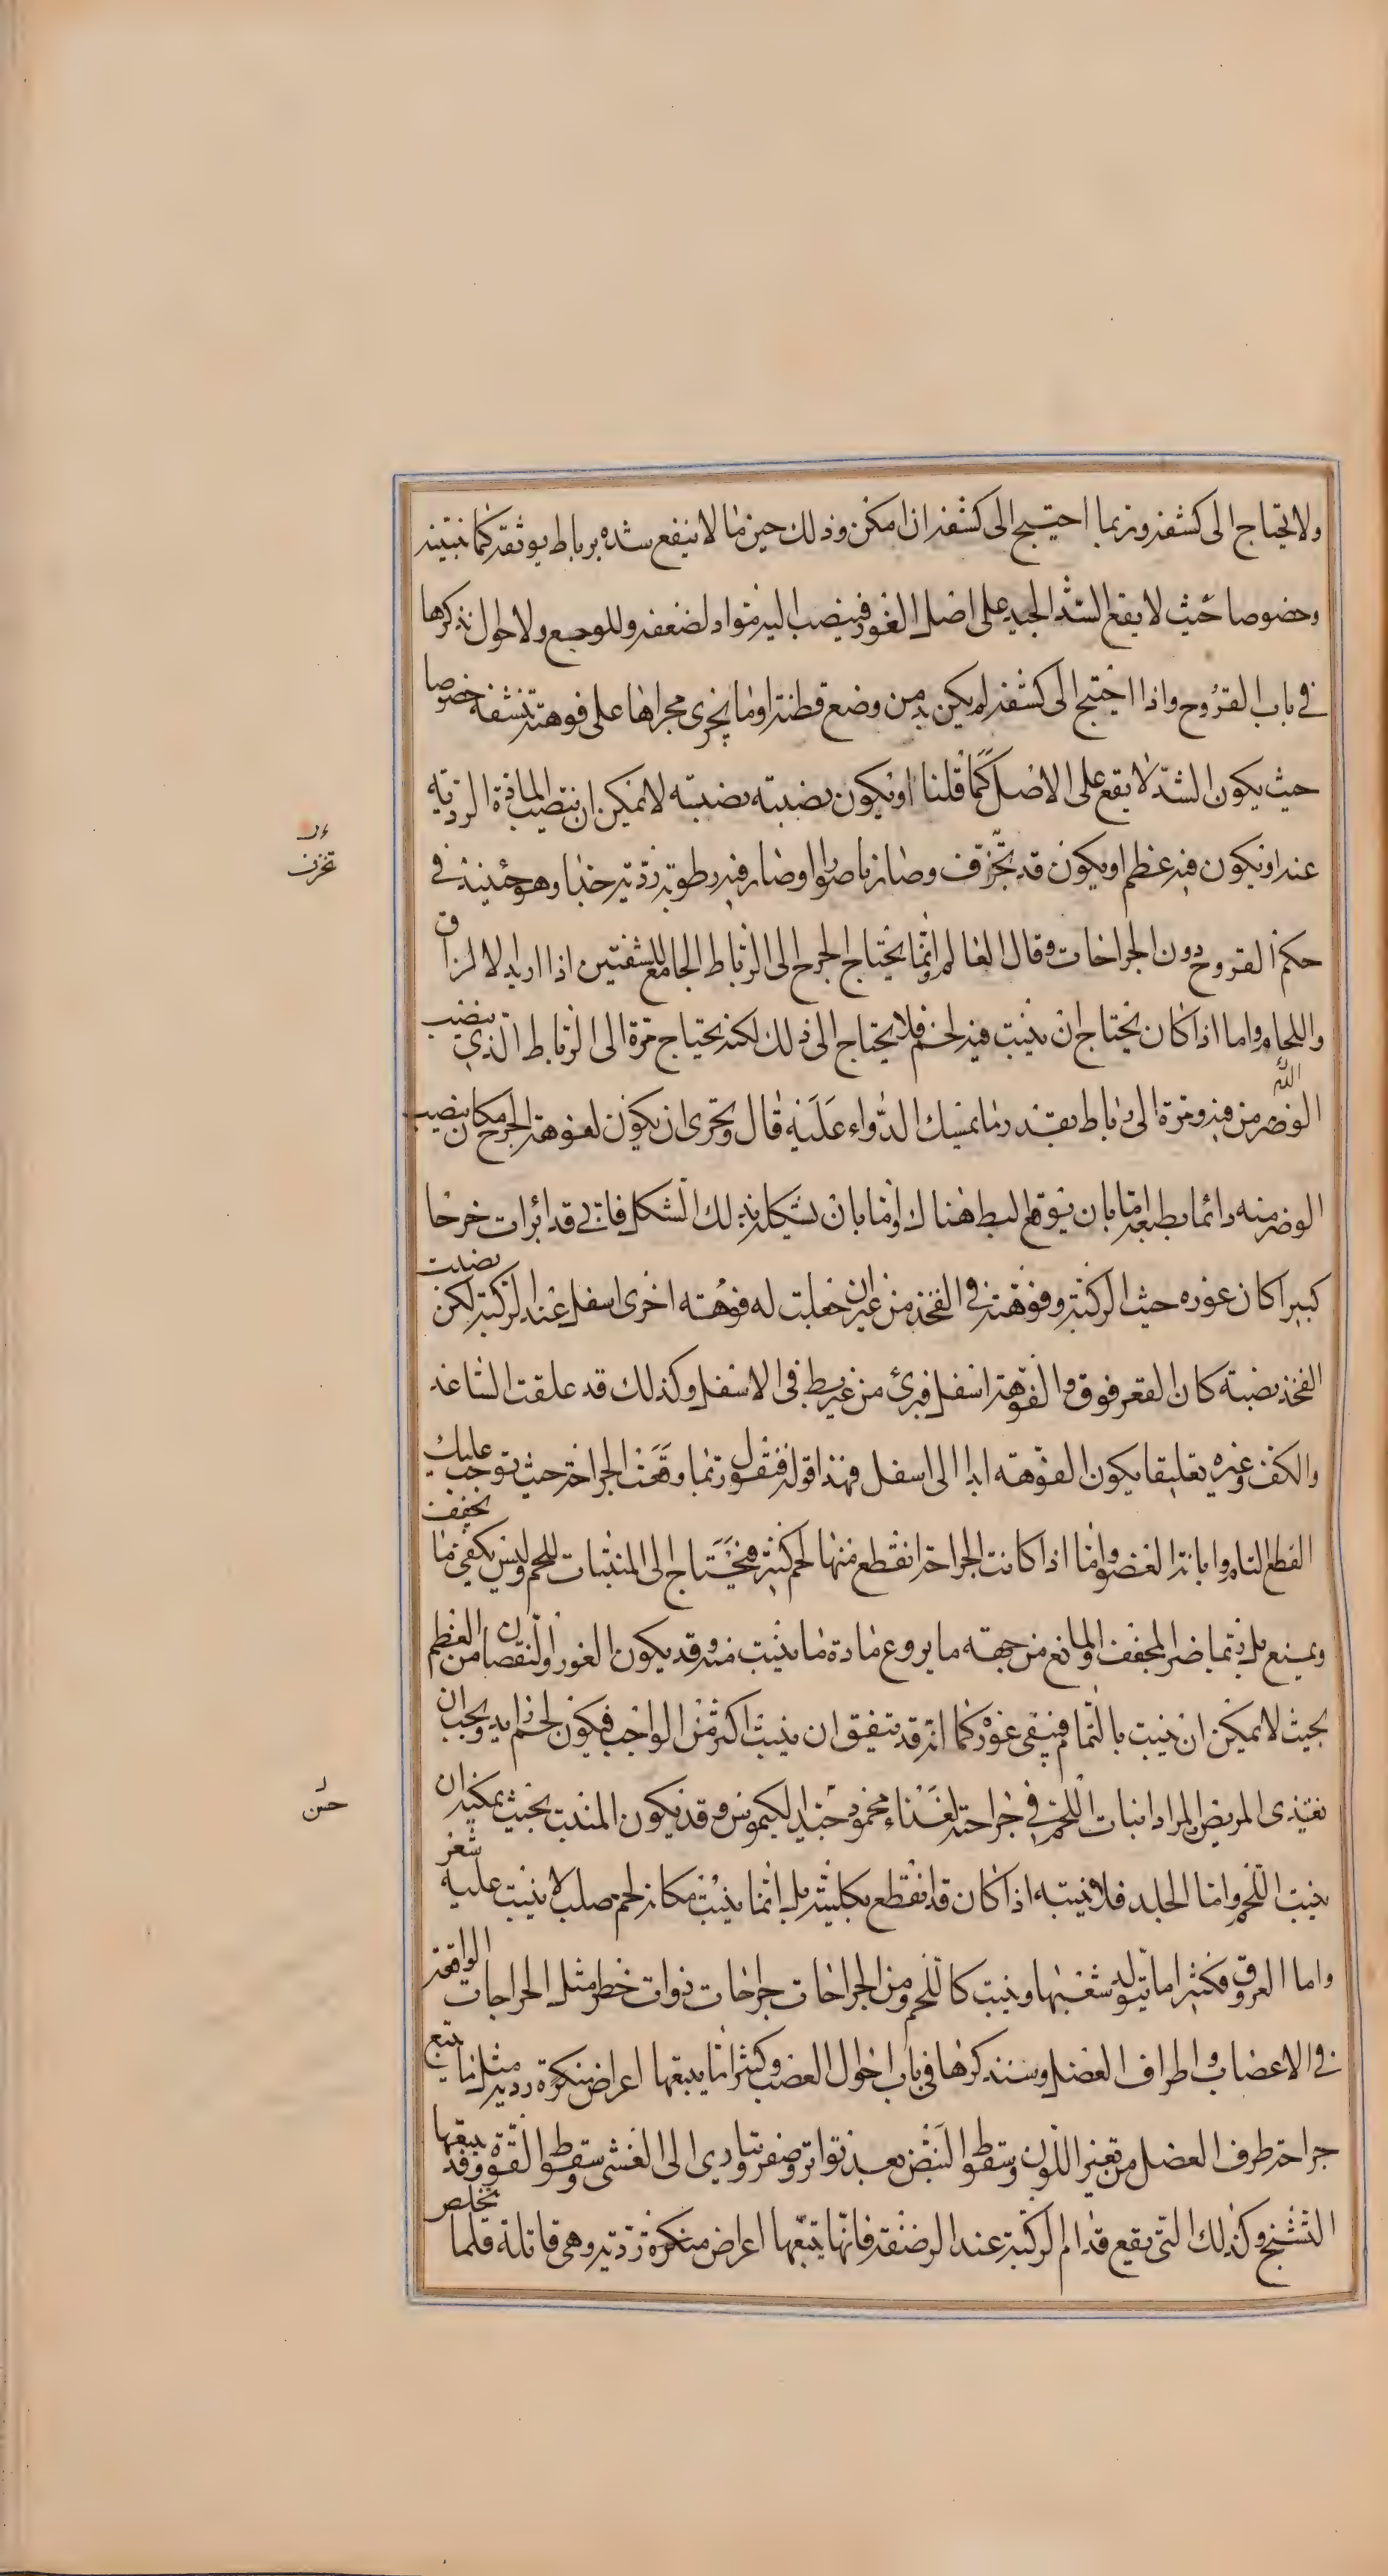 ولا يحتاج الى كشفه وربما احتيج الى كشفه ان امكن وذلك حين ما لا ينفع شده برباط يوثقه كما نبينه
وخصوصا حيث لا يقع الشد الجيد على اصل الغور فينصب اليه مواد لضعفه وللوجع ولاحوال نذكرها
في باب القروح واذا احتيج الى كشفه لم يكن بد من وضع قطنة او ما يجري مجراها على فوهته تنشفه خصوصا
حيث يكون الشد لا يقع على الاصل كما قلنا او يكون نصبته نصبته لا يمكن ان تنصب المادة الردية
عنه او يكون فيه عظم او يكون قد تخزف وصار ناصورا وصار فيه رطوبة ردية جدا وهو حينئذ في
تخزف
حكم القروح دون الجراحات وقال العالم وانما يحتاج الجرح الى الرباط الجامع للشفتين اذا اريد الالزاق
واللحام واما اذا كان يحتاج ان ينبت فيه لحم فلا يحتاج الى ذلك لكنه يحتاج مرة الى الرباط الذي ينصب
الوضر من فيه ومرة الى رباط بقدر ما يمسك الدواء عليه قال ويحرى ان يكون لفوهة الجرح مكان ينصب
الوضر منه دائما بطبعه اما بان يوقع البط هناك واما بان يشكله بذلك الشكل فاني قد ابرات جرحا
كبيرا كان غوره حيث الركبة وفوهته في الفخذ من غير ان جعلت له فوهته اخرى اسفل عند الركبة لكن نصبت
الفخذ نصبة كان القعر فوق والفوهة اسفل فبرئ من غير بط في الاسفل وكذلك قد علقت الساعد
والكف وغيره تعليقا يكون الفوهته ابدا الى اسفل فهذا قوله فنقول ربما وقعت الجراحة حيث توجب عليك
القطع التام وابانة العضو واما اذا كانت الجراحة انقطع منها لحم كثير فتحتاج الى المنبتات للحم وليس يكفي ما يجفف
ويمنع بل ربما ضر المجفف والمانع من جهته ما يروع مادة ما ينبت منه وقد يكون الغور والنقصان من العظم
بحيث لا يمكن ان ينبت بالتمام فيبقى غور كما انه قد يتفق ان ينبت اكثر من الواجب فيكون لحم زايد ويجب ان
يغتذى المريض المراد انبات اللحم في جراحته بغذاء محمود جيد الكيموس وقد يكون المنبت بحيث يمكنه ان
حسن
ينبت اللحم واما الجلد فلا ينبته اذا كان قد انقطع بكليته بل انما ينبت مكانه لحم صلب لا ينبت عليه شعر
واما العروق فكثيرا ما يتولد شعبها وينبت كاللحم ومن الجراحات جراحات ذوات خطر مثل الجراحات الواقعة
في الاعصاب واطراف العضل وسنذكرها في باب احوال العصب وكثيرا ما يتبعها اعراض منكرة ردية مثل ما يتبع
جراحة طرف العضل من تغير اللون وسقوط النبض بعد تواتر وصغر ويتادى الى الغشى وسقوط القوة وقد يتبعها
التشنج وكذلك التي يقع قدام الركبة عند الرضفة فانها يتبعها اعراض منكرة ردية وهي قاتلة قلما يتخلص